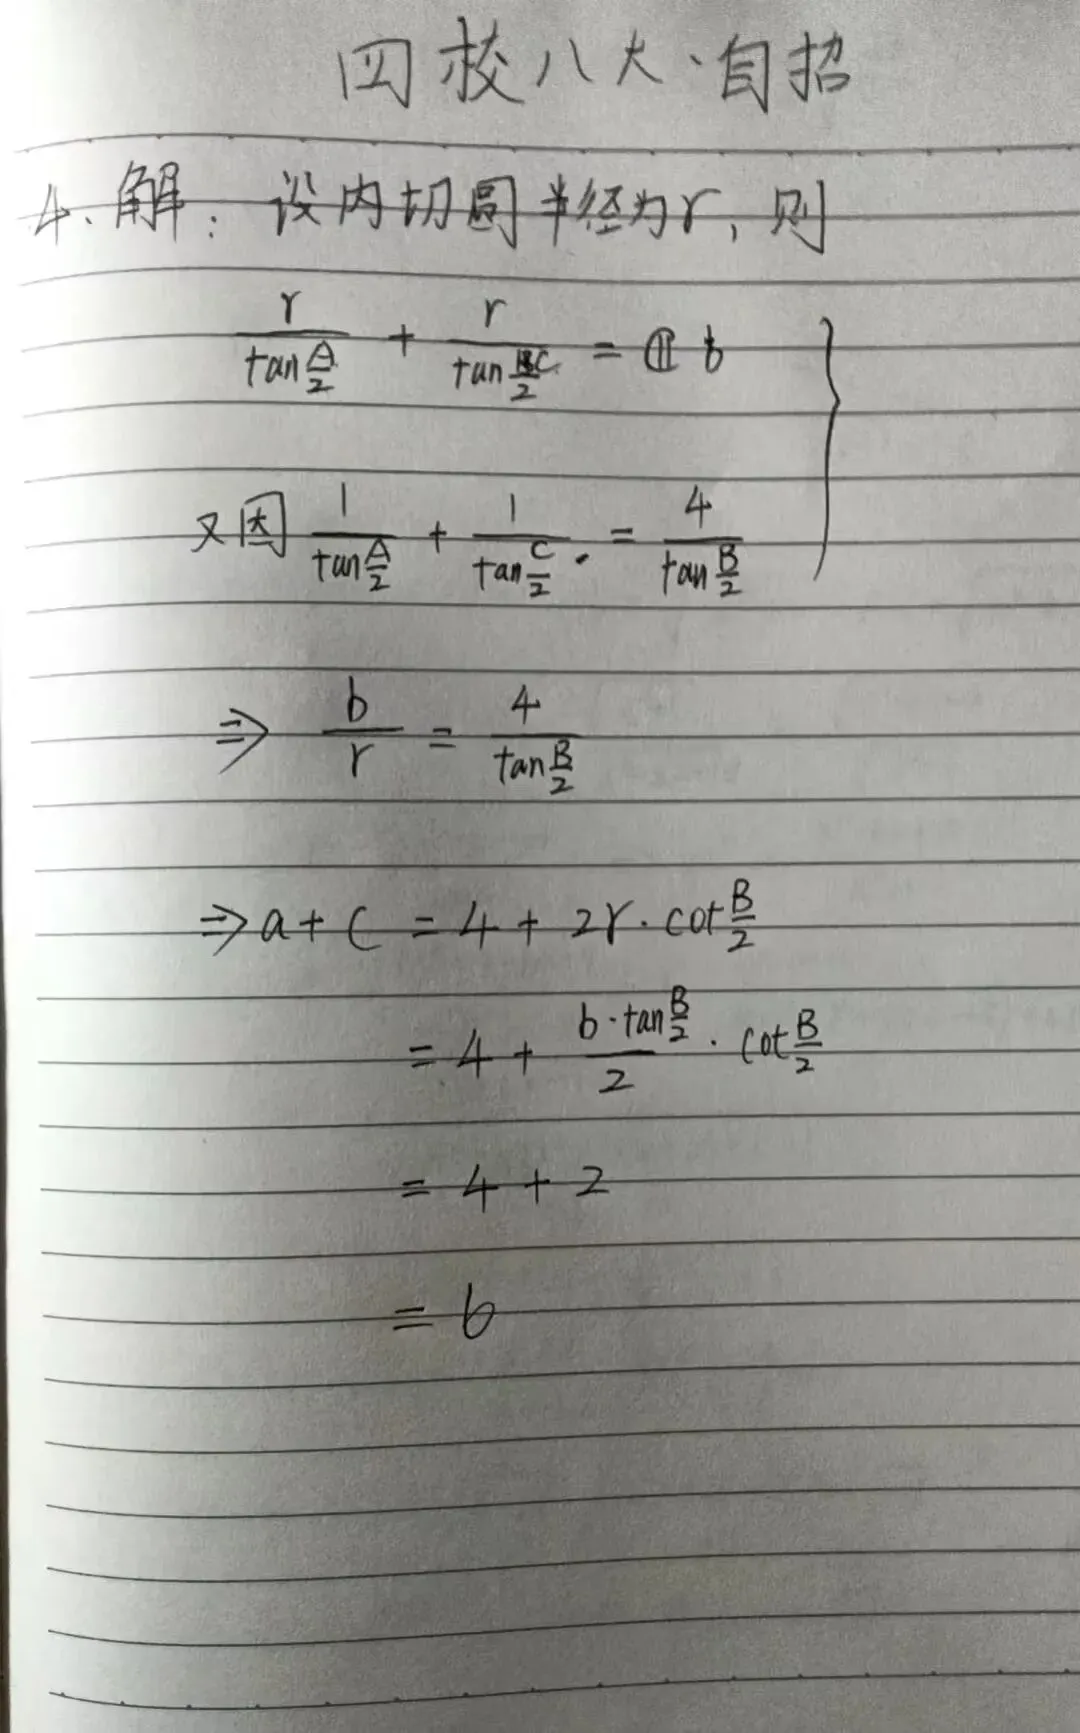 四校八大·自招
4. 解: 设内切圆半径为r, 则
r/tan(A/2) + r/tan(C/2) = b
又因 1/tan(A/2) + 1/tan(C/2) = 4/tan(B/2)
⇒ b/r = 4/tan(B/2)
⇒ a + c = 4 + 2r · cot(B/2)
= 4 + (b · tan(B/2))/2 · cot(B/2)
= 4 + 2
= 6